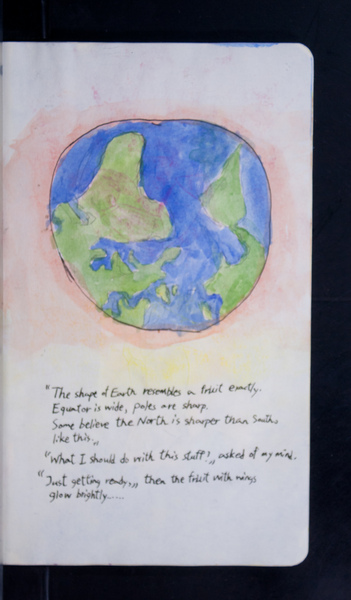 "The shape of Earth resembles a fruit exactly.
Equator is wide, poles are sharp.
Some believe the North is sharper than South,
like this.„
"What I should do with this stuff?„ asked of my mind.
"Just getting ready,„ then the fruit with wings
glow brightly......